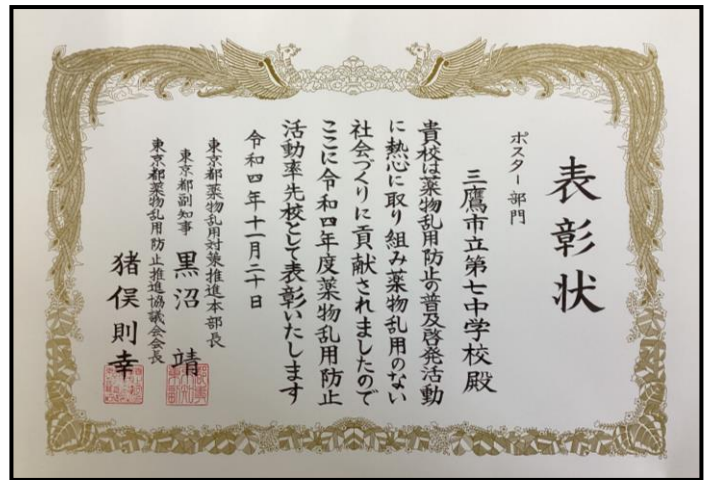 表彰状
ポスター部門
三鷹市立第七中学校殿
貴校は薬物乱用防止の普及啓発活動
に熱心に取り組み薬物乱用のない
社会づくりに貢献されましたので
ここに令和四年度薬物乱用防止
活動率先校として表彰いたします
令和四年十一月二十日
東京都薬物乱用対策推進本部長
東京都副知事 黒沼靖
東京都薬物乱用防止推進協議会会長
猪俣則幸